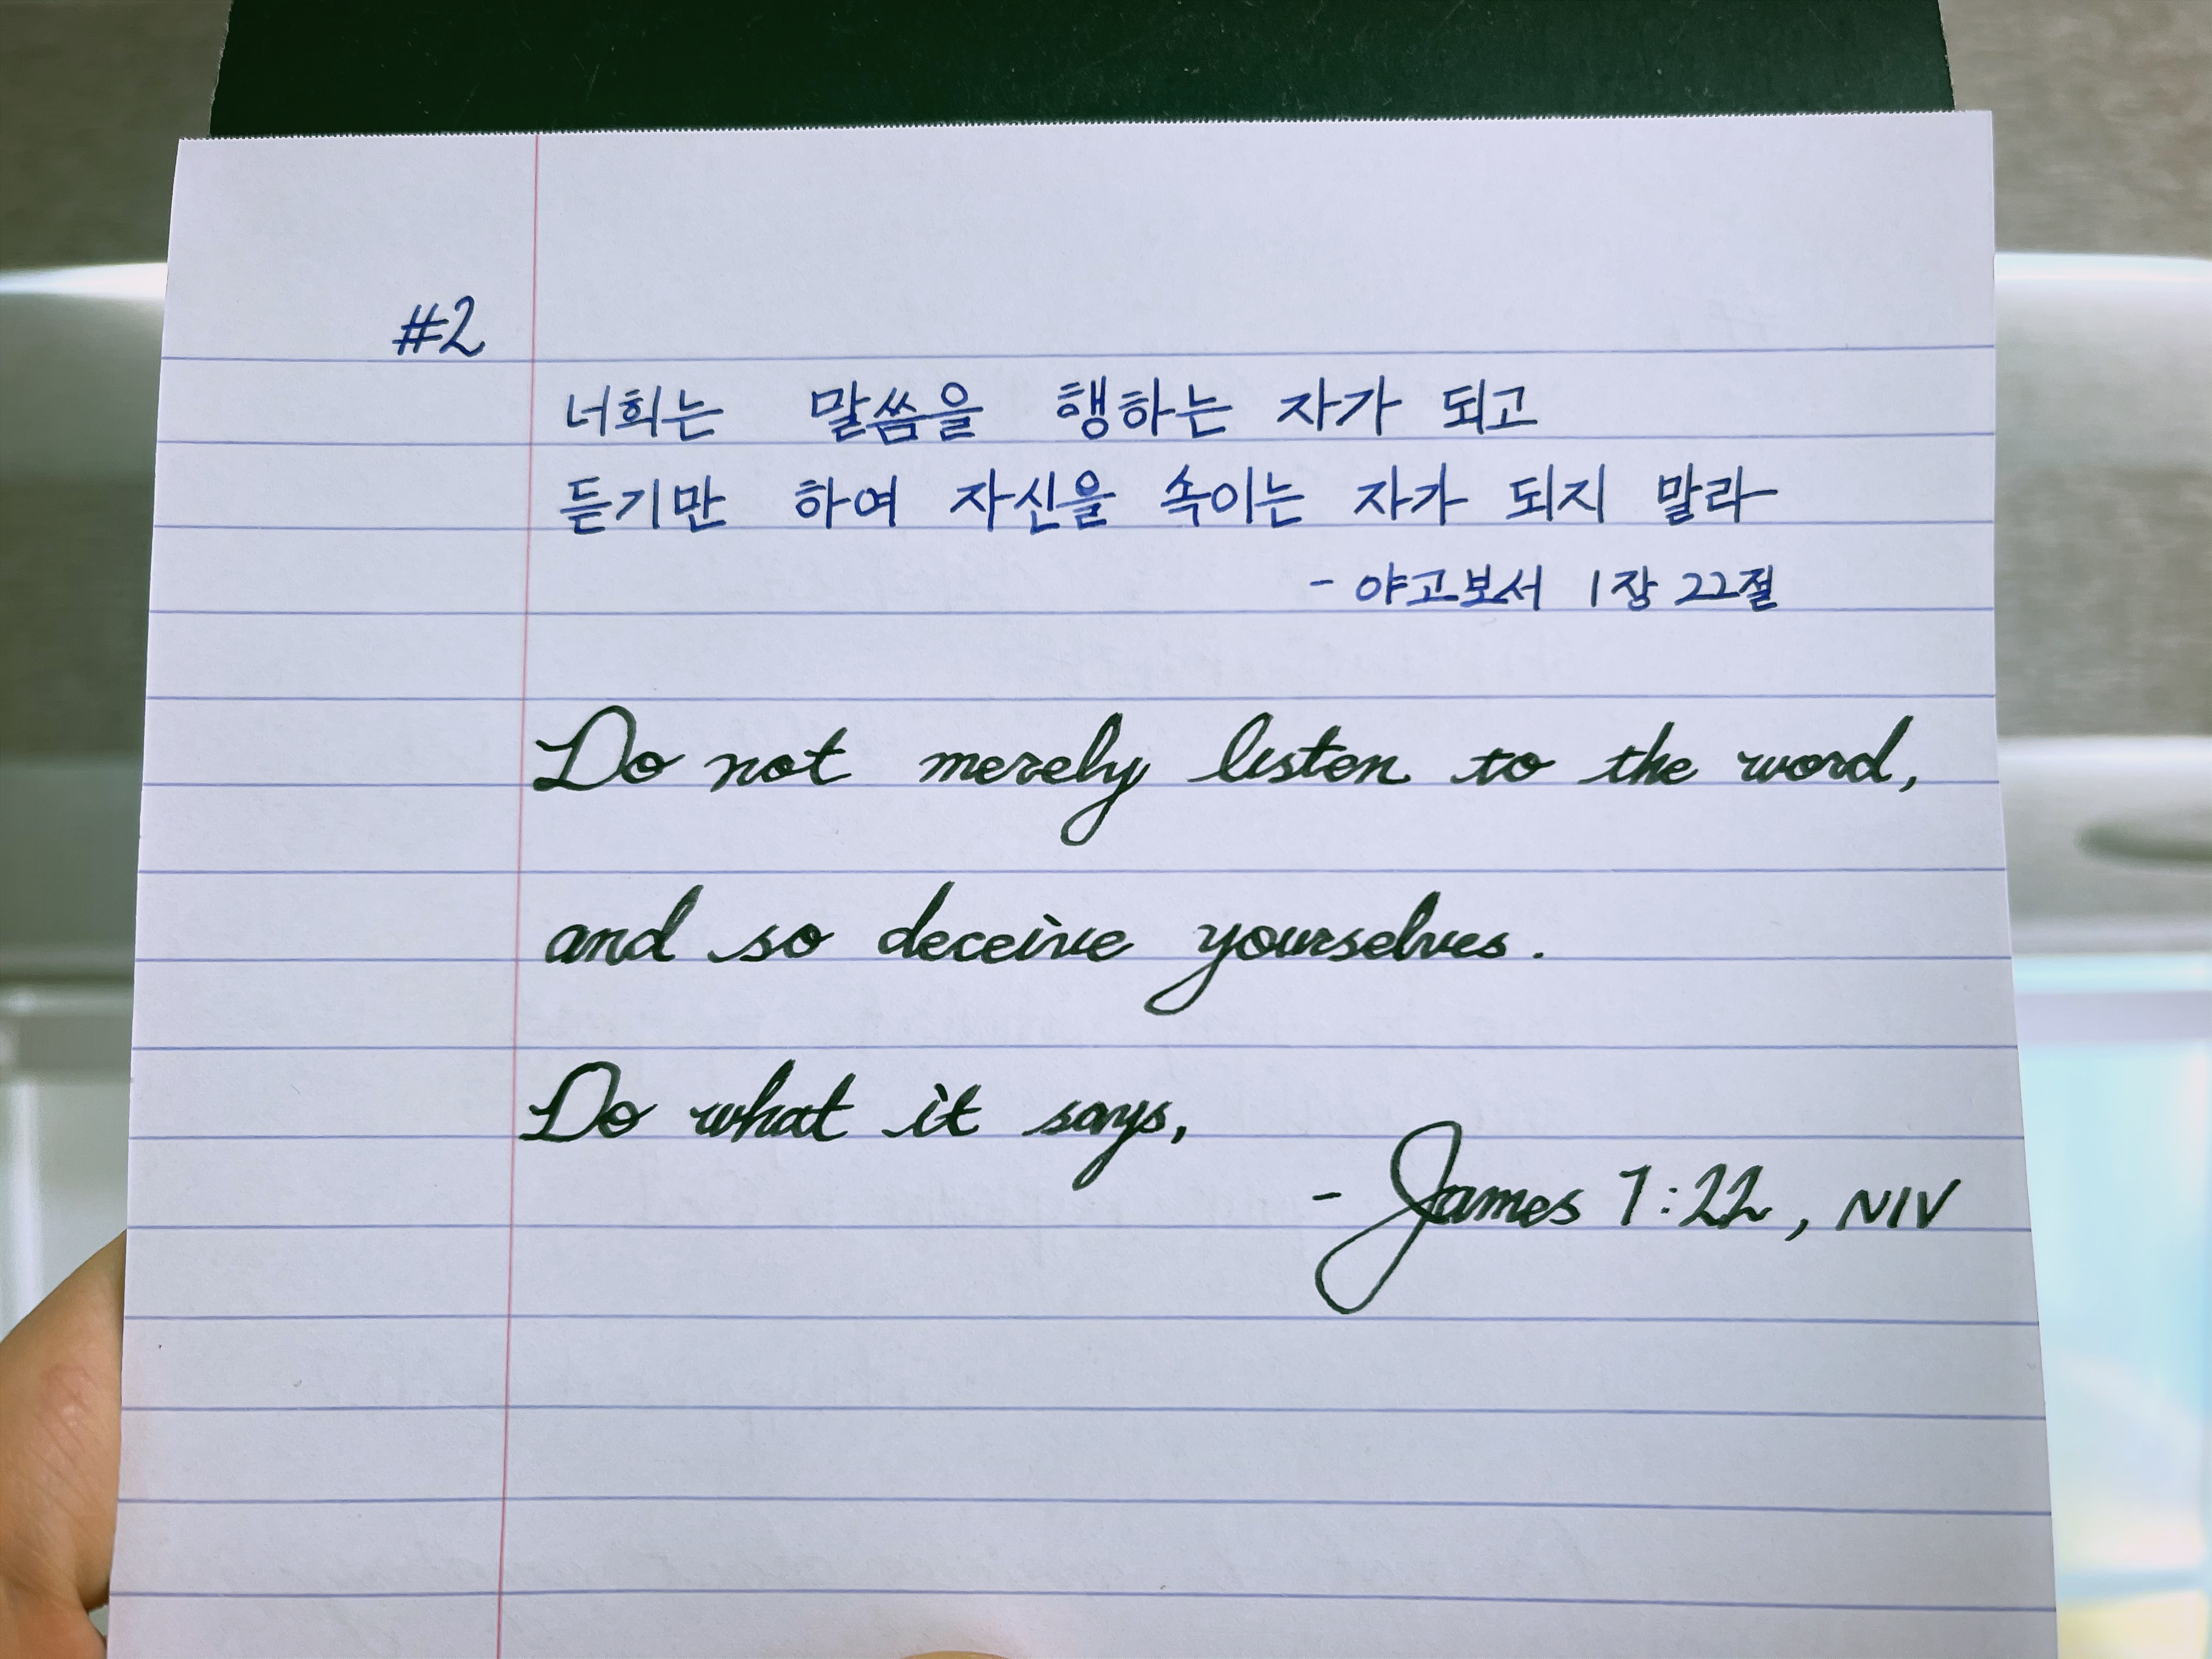 #2
너희는 말씀을 행하는 자가 되고
듣기만 하여 자신을 속이는 자가 되지 말라
- 야고보서 1장 22절
Do not merely listen to the word,
and so deceive yourselves.
Do what it says,
- James 1:22, NIV